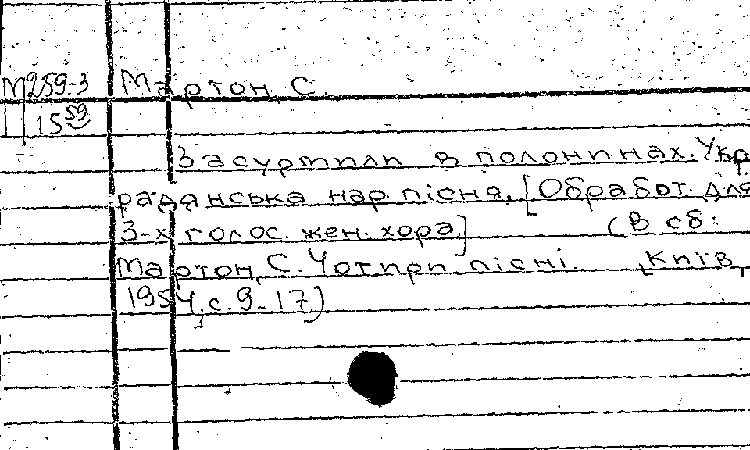 М259-3 Мартон, С.
П 15 59
Засурмили в полонинах. Укр.
радянська нар. пісня. [Обработ. для
3-х голос. жен. хора.] (В сб:
Мартон, С. Чотири пісні. Київ,
1954, с. 9-17)